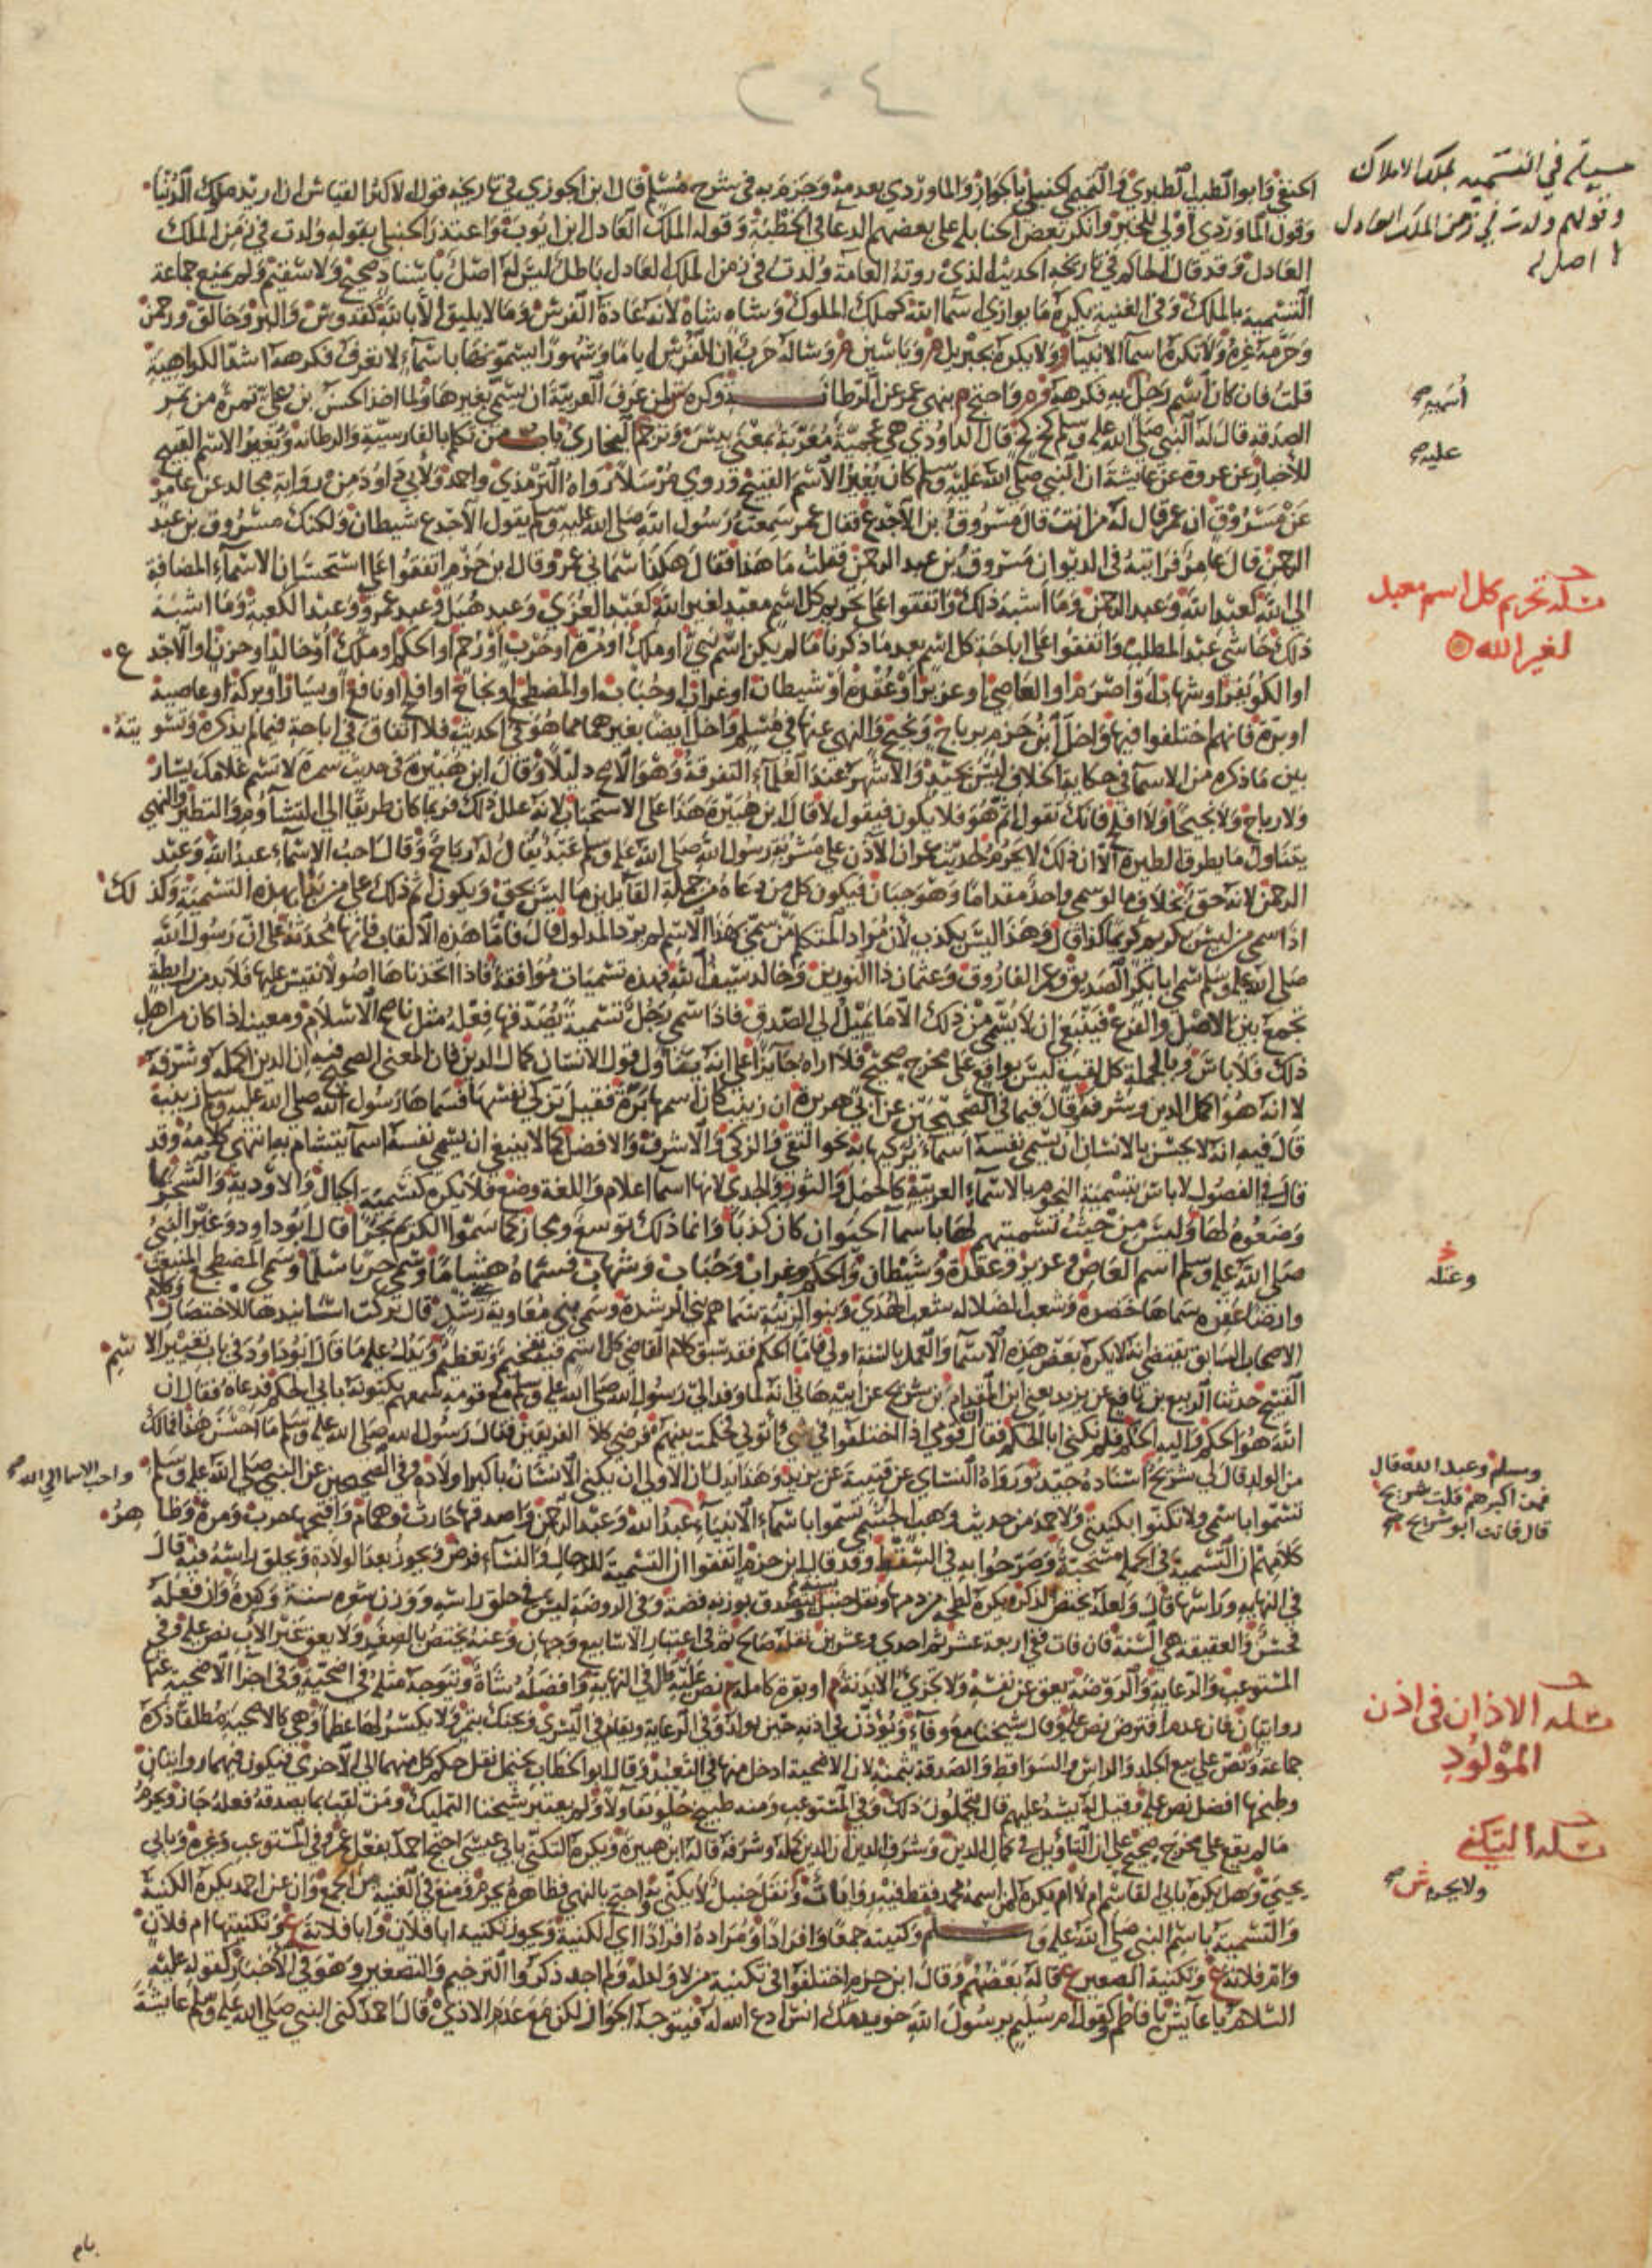 ٢٠٤
الحنفي وابو الطيب الطبري والتميمي الحنبلي بالجواز والماوردي بعدمه وجزم به في شرح مسلم قال ابن الجوزي في تاريخه قول الاكثر القياس اذا اريد ملوك الدنيا
وقول الماوردي اولى للخبر وانكر بعض الحنابلة على بعضهم الدعا في الخطبة وقوله الملك العادل ابن ايوب واعتذر الحنبلي بقوله ولدت في زمن الملك
العادل وقد قال الحاكم في تاريخه الحديث الذي روته العامة ولدت في زمن الملك العادل باطل ليس له اصل باسناد صحيح ولا سقيم ولم يمنع جماعة
التسمية بالملك وفي الغنية يكره ما يوازي اسما الله كملك الملوك وشاه شاه لانه عادة الفرس وما لا يليق الا بالله كقدوس والبر وخالق ورحمن
وحرمه غيره ولا تكره اسما الانبيا ولا يكره بجبريل وياسين وساله حرب ان للفرس اياما وشهورا يسمونها باسماء لا تعرف فكرهه اشد الكراهية
قلت فان كان اسم رجل به فكرهه واحتج بنهي عمر عن الرطانة وكره لمن عرف العربية ان يسمي بغيرها ولما اخذ الحسن بن علي تمرة من تمر
الصدقة قال له النبي صلى الله عليه وسلم كخ كخ قال الداودي هي عجمية معربة بمعنى بيس وترجم البخاري باب من تكلم بالفارسية والرطانة ويغير الاسم القبيح
للاخبار عن عروة عن عايشة ان النبي صلى الله عليه وسلم كان يغير الاسم القبيح وروي مرسلا رواه الترمذي واحمد ولابي داود من رواية مجالد عن عامر
عن مسروق ان عمر قال له من انت قال مسروق بن الاجدع فقال عمر سمعت رسول الله صلى الله عليه وسلم يقول الاجدع شيطان ولكنك مسروق بن عبد
الرحمن قال عامر فرايته في الديوان مسروق بن عبد الرحمن فقلت ما هذا فقال هكذا سماني عمر وقال ابن حزم اتفقوا على استحسان الاسماء المضافة
الى الله كعبد الله وعبد الرحمن وما اشبه ذلك واتفقوا على تحريم كل اسم معبد لغير الله كعبد العزى وعبد هبل وعبد عمرو وعبد الكعبة وما اشبه
ذلك حاشى عبد المطلب واتفقوا على اباحة كل اسم بعد ما ذكرنا ما لم يكن اسم نبي او ملك او مرة او حرب او رحم او الحكم او ملك او خالد او حزن او الاجدع
او الكويفر او شهاب او اصرم او العاصي او عزيز او عقدة او شيطان او غراب او حباب او المضطجع او نجاح او افلح او نافع او يسار او بركة او عاصية
او برة فانهم اختلفوا فيها واخل ابن حزم برباح ونجيح والنهي عنها في مسلم واخل ايضا بغيرهما مما هو في الحديث فلا اتفاق في اباحة فيما لم يذكره وتسويته
بين ما ذكره من الاسما في حكاية الخلاف ليس بجيد والاشهر عند العلماء التفرقة وهو الاصح دليلا وقال ابن هبيرة في حديث سمرة لا تسم غلامك يسار
ولا رباح ولا نجيحا ولا افلح فانك تقول اثم هو فلا يكون فيقول لا قال ابن هبيرة هذا على الاستحباب لانه علل ذلك فربما كان طريقا الى التشاوم والتطير والنهي
يتناول ما يطرق الطيرة الا ان ذلك لا يحرم لحديث عمر ان الاذن على مشربة رسول الله صلى الله عليه وسلم عبد يقال له رباح وقال احب الاسماء عبد الله وعبد
الرحمن لانه حق بخلاف ما لو سمي واحد مقداما وهو جبان فيكون كل من دعاه من جملة القايلين ما ليس بحق ويكون اثم ذلك على من بدا بهذه التسمية وكذلك
اذا سمي من ليس بكريم كريما كذا قال وهذا ليس بكذب لان مراد المتكلم من سمي بهذا الاسم لم يرد المدلول قال فاما هذه الالقاب فانها محدثة على ان رسول الله
صلى الله عليه وسلم سمي ابا بكر الصديق وعمر الفاروق وعثمان ذا النورين وخالد سيف الله فهذه تسميات موافقة فاذا اتخذناها اصولا نقيس عليها فلا بد من رابطة
تجمع بين الاصل والفرع فينبغي ان لا يسمى من ذلك الا ما يميل الى الصدق فاذا سمي رجل تسمية يصدقها فعله مثل ناصح الاسلام ومعينه اذا كان من اهل
ذلك فلا باس وبالجملة كل لقب ليس بواقع على مخرج صحيح فلا اراه جايزا على انه يتناول قول الانسان كمال الدين فان المعنى الصحيح فيه ان الدين اكمله وشرفه
لا انه هو اكمل الدين وشرفه وقال فيما في الصحيحين عن ابي هريرة ان زينب كان اسمها برة فقيل تزكي نفسها فسماها رسول الله صلى الله عليه وسلم زينب
قال فيه انه لا يحسن بالانسان ان يسمي نفسه اسماء يزكيها به نحو التقي والزكي والاشرف والافضل كما لا ينبغي ان يسمي نفسه اسما يتشاءم به انتهى كلامه وقد
قال في الفصول لا باس بتسمية النجوم بالاسماء العربية كالحمل والثور والجدي لانها اسما اعلام واللغة وضع فلا يكره كتسمية الجبال والاودية والشجر بما
وضعوه لها وليس من حيث تسميتهم لها باسما الحيوان كان كذبا وانما ذلك توسع ومجاز كما سموا الكريم بحرا قال ابو داود وغير النبي
صلى الله عليه وسلم اسم العاص وعزيز وعقدة وشيطان والحكم وغراب وحباب وشهاب فسماه هشاما وسمي حربا سلما وسمي المضطجع المنبعث
وارضا عفرة سماها خضرة وشعب الضلالة شعب الهدى وبنو الزنية سماهم بني الرشدة وسمى بني مغوية بني رشدة قال تركت اسانيدها للاختصار وكلام
الاصحاب السابق يقتضي انه لا يكره بعض هذه الاسما والعمل بالسنة اولى فاما الحكم فقد سبق كلام القاضي كل اسم فيه تفخيم وتعظيم ويدل عليه ما قال ابو داود في باب تغيير الاسم
القبيح حدثنا الربيع بن نافع عن يزيد يعني ابن المقدام بن شريح عن ابيه هاني انه لما وفد الى رسول الله صلى الله عليه وسلم مع قومه سمعهم يكنونه بابي الحكم فدعاه فقال ان
الله هو الحكم واليه الحكم فلم تكنى ابا الحكم فقال ان قومي اذا اختلفوا في شي اتوني فحكمت بينهم فرضي كلا الفريقين فقال رسول الله صلى الله عليه وسلم ما احسن هذا فما لك
من الولد قال لي شريح اسناده جيد ورواه النساي عن قتيبة عن يزيد وهذا يدل ان الاولى ان يكنى الانسان باكبر اولاده وفي الصحيحين عن النبي صلى الله عليه وسلم
تسموا باسمي ولا تكنوا بكنيتي ولاحمد من حديث وهب الجشمي تسموا باسماء الانبياء عبد الله وعبد الرحمن واصدقها حارث وهمام واقبحها حرب ومرة وظاهر
كلامهم ان التسمية في الجملة مستحبة وصرحوا به في السقط وقد قال ابن حزم اتفقوا ان التسمية للرجال والنساء فرض ويجوز بعد الولادة ويحلق راسه فيه قال
في النهاية وراسها قال ولعله يختص الذكر ويكره لطخه من دمها ونقل حنبل سنة ويتصدق بوزنه فضة وفي الروضة ليس في حلق راسه ووزن شعره سنة وكيدة وان فعله
فحسن والعقيقة هي السنة فان فات ففي اربعة عشر ثم احدى وعشرين نقله صالح ثم في اعتبار الاسابيع وجهان وعنه يختص بالصغير ولا يعق غير الاب نص عليه وفي
المستوعب والرعاية والروضة يعق عن نفسه ولا يجزي الا بدنة او بقرة كاملة نص عليه قال في النهاية وافضله شاة ويتوجه مثله في اضحية وفي اجزا الاضحية عنها
روايتان فان عدم اقترض نص عليه وقال شيخنا مع وفاء ويوذن في اذنه حين يولد وفي الرعاية ويقام في اليسرى ويحنك بتمر ولا يكسر لها عظما وهي كالاضحية مطلقا ذكره
جماعة ونص على بيع الجلد والراس والسواقط والصدقة بثمنه لان الاضحية ادخل منها في التعبد وقال ابو الخطاب يحتمل نقل حكم كل منهما الى الاخرى فيكون فيهما روايتان
وطبخها افضل نص عليه وقيل له يشتد عليهم قال يتحملون ذلك وفي المستوعب ومنه طبيخ حلو تفاولا ولم يعتبر شيخنا التمليك ومن لقب بما يصدقه فعله جاز ويحرم
ما لم يقع على مخرج صحيح على ان التاويل في كمال الدين وشرف الدين ان الدين كمله وشرفه قاله ابن هبيرة ويكره التكني بابي عيسى احتج احمد بفعل عمر وفي المستوعب وغيره وبابي
يحيى وهل يكره بابي القاسم ام لا ام يكره لمن اسمه محمد فقط فيه روايات ونقل حنبل لا يكتني به واحتج بالنهي فظاهره يحرم ومنع في الغنية من الجمع وان عن احمد يكره الكنية
والتسمية باسم النبي صلى الله عليه وسلم وكنيته جمعا وافرادا ومراده افرادا اي الكنية ويجوز تكنيه ابا فلان وابا فلانة وتكنيتها ام فلان
وام فلانة وتكنية الصغير قاله بعضهم وقال ابن حزم اختلفوا في تكنية من لا ولد له ولم اجد ذكروا الترخيم والتصغير وهو في الاخبار كقوله عليه
السلام يا عايش يا فاطم وكقول ام سليم يا رسول الله خويدمك انس ادع الله له فيتوجه الجواز لكن مع عدم الاذى قال احمد كنى النبي صلى الله عليه وسلم عايشة
مسيلة في التسمية بملك الاملاك
وقولهم ولدت في زمن الملك العادل
لا اصل له
اسميه صح
عليه صح
مسلة تحريم كل اسم معبد
لغير الله
وعتله
وسلم وعبد الله قال
فمن اكبرهم قلت شريح
قال فانت ابو شريح صح
واحب الاسما الى الله صح
مسلة الاذان في اذن
المولود
مسلة التكني
ولا يحرم ش صح
بام